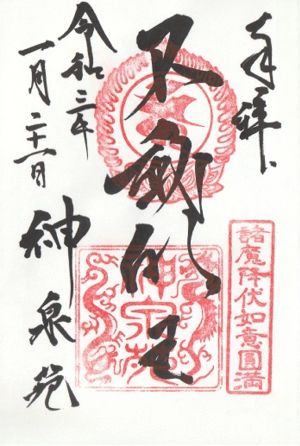 奉拝
諸魔降伏如意圓満
不動明王
神泉苑
令和三年
一月二十一日
神泉苑